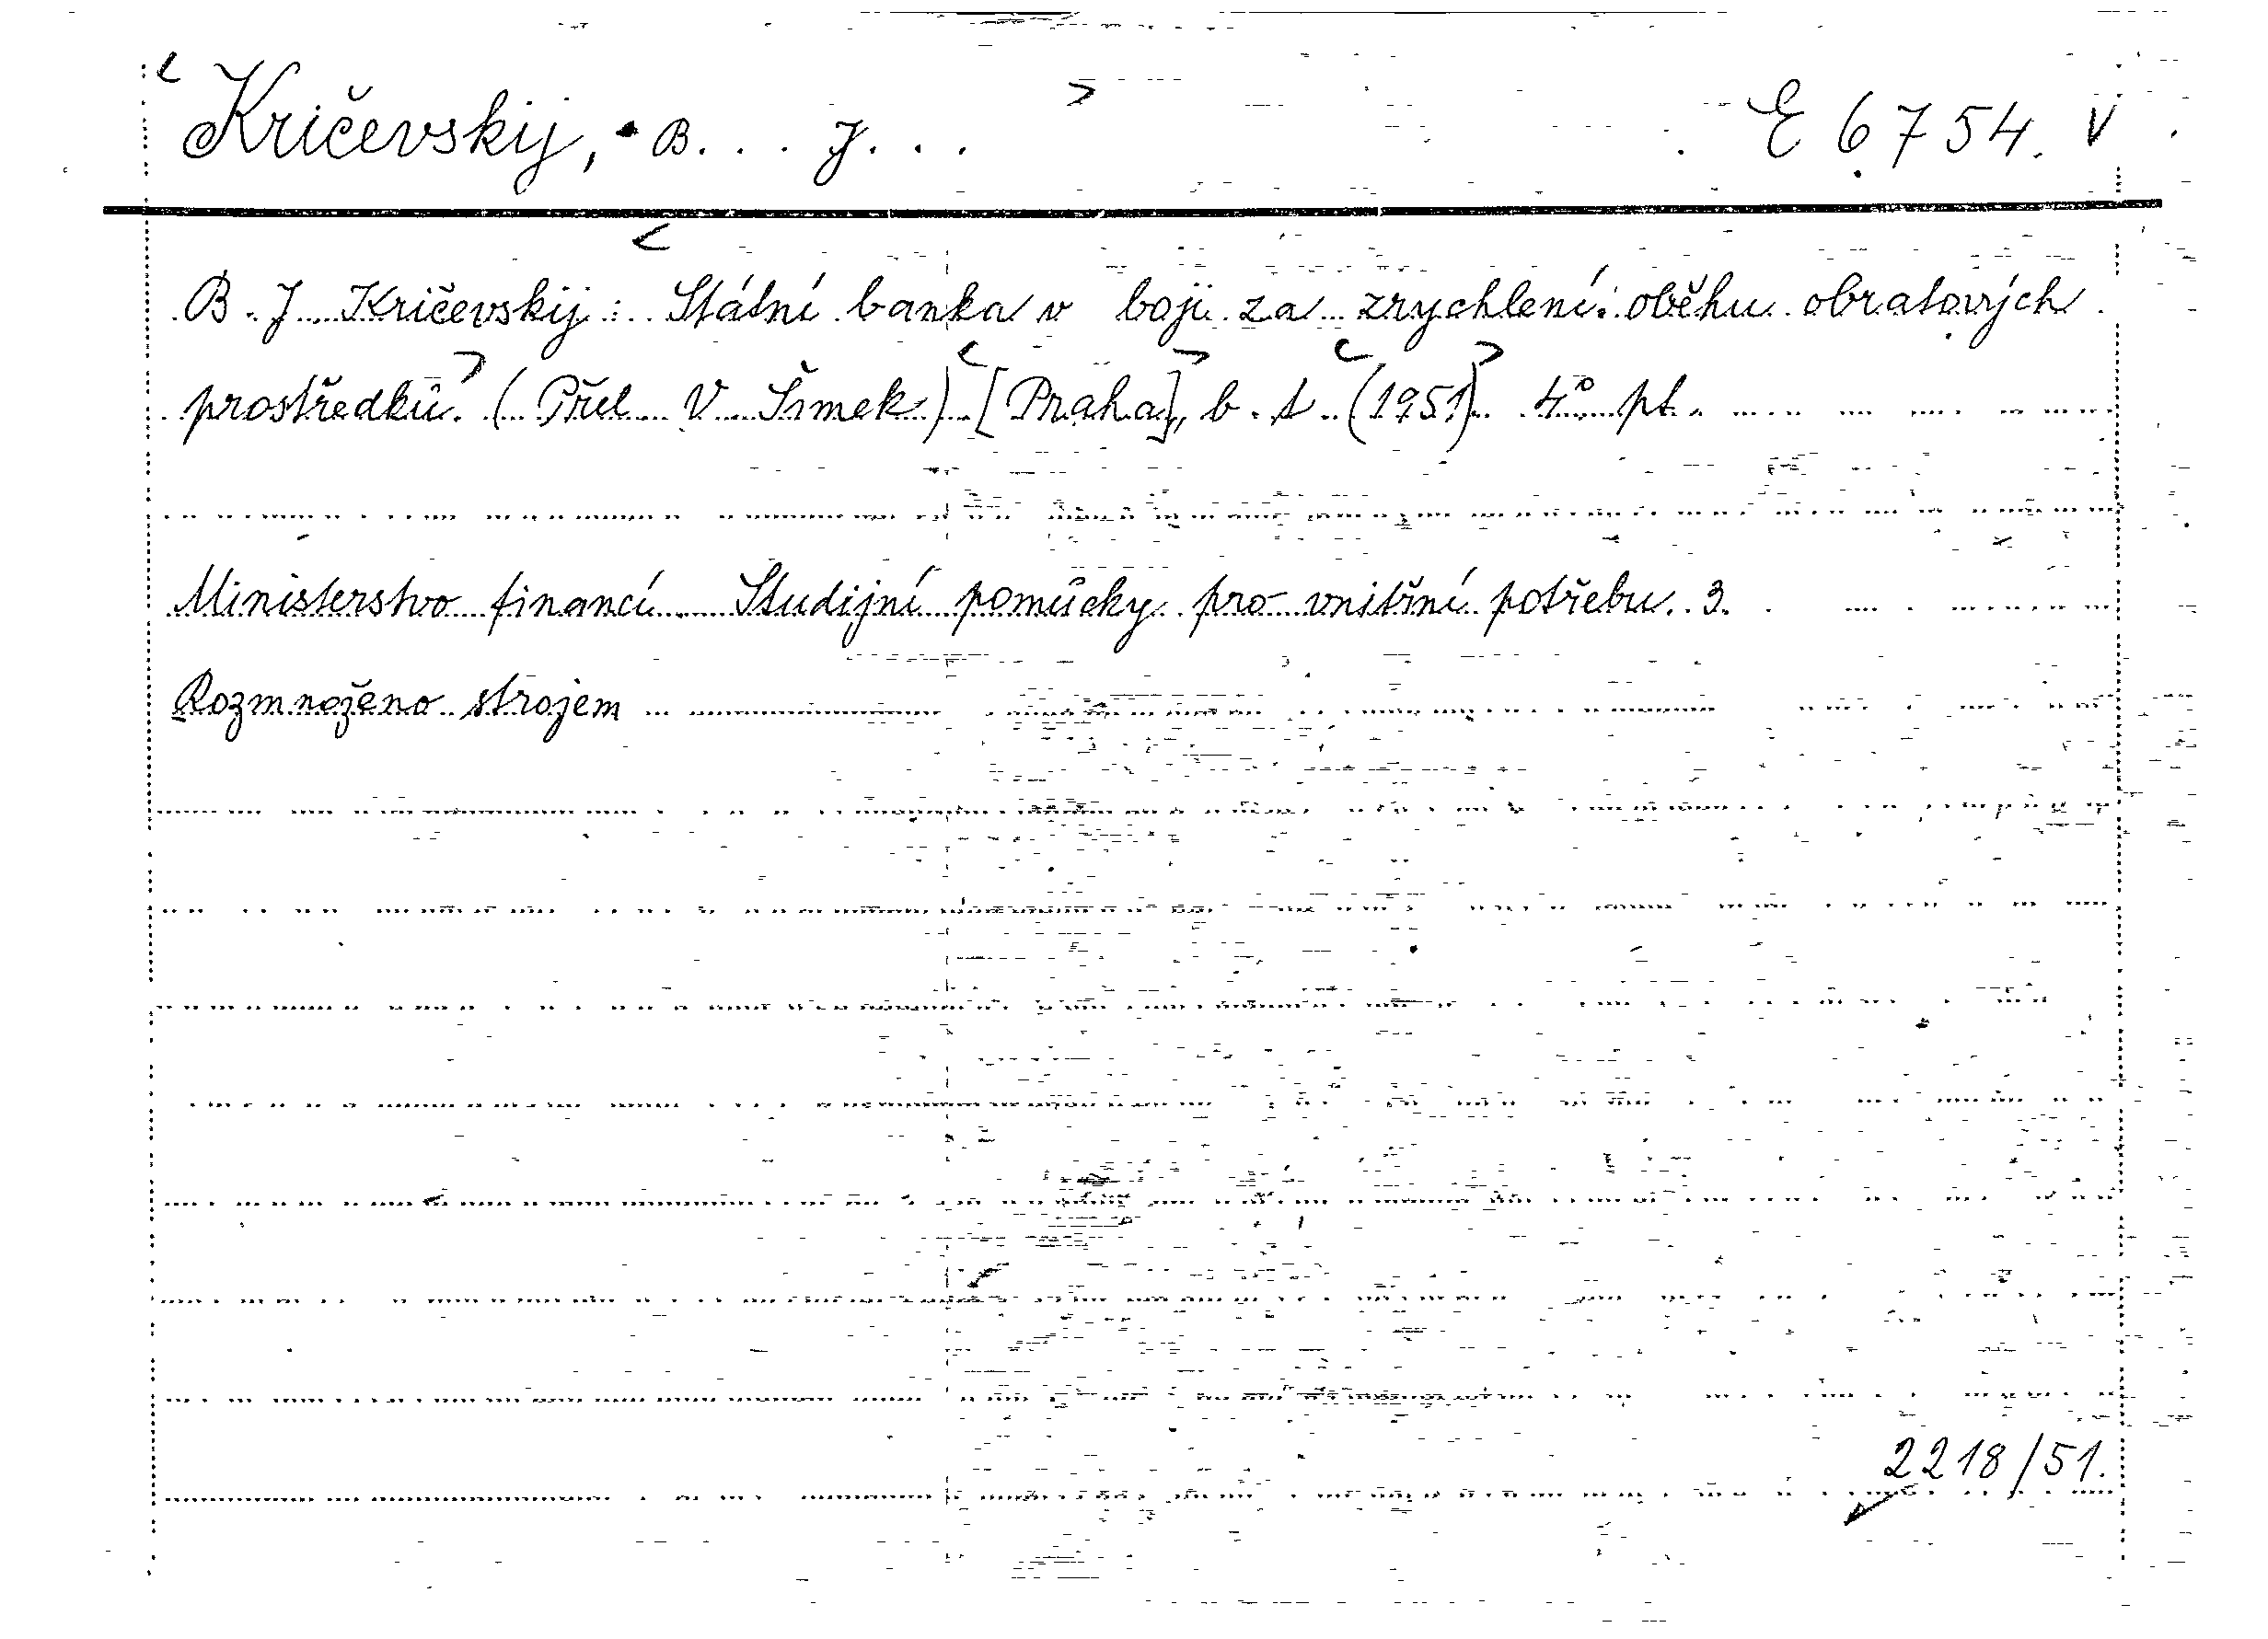 Kričevskij, B... J... E 6754. V
B. J. Kričevskij: Státní banka v boji za zrychlení oběhu obratových
prostředků. (Přel. V. Šimek) [Praha], b. t. (1951). 4° pt.
Ministerstvo financí. Studijní pomůcky pro vnitřní potřebu. 3.
Rozmnoženo strojem
2218/51.